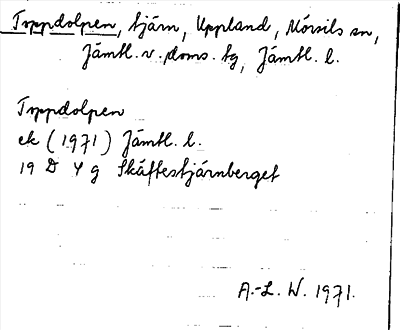 Toppdolpen, tjärn, Uppland, Mörsils sn,
Jämtl. v. doms. tg, Jämtl. l.
Toppdolpen
ek (1971) Jämtl. l.
19 D 4 g Skäftestjärnberget
A.-L. W. 1971.